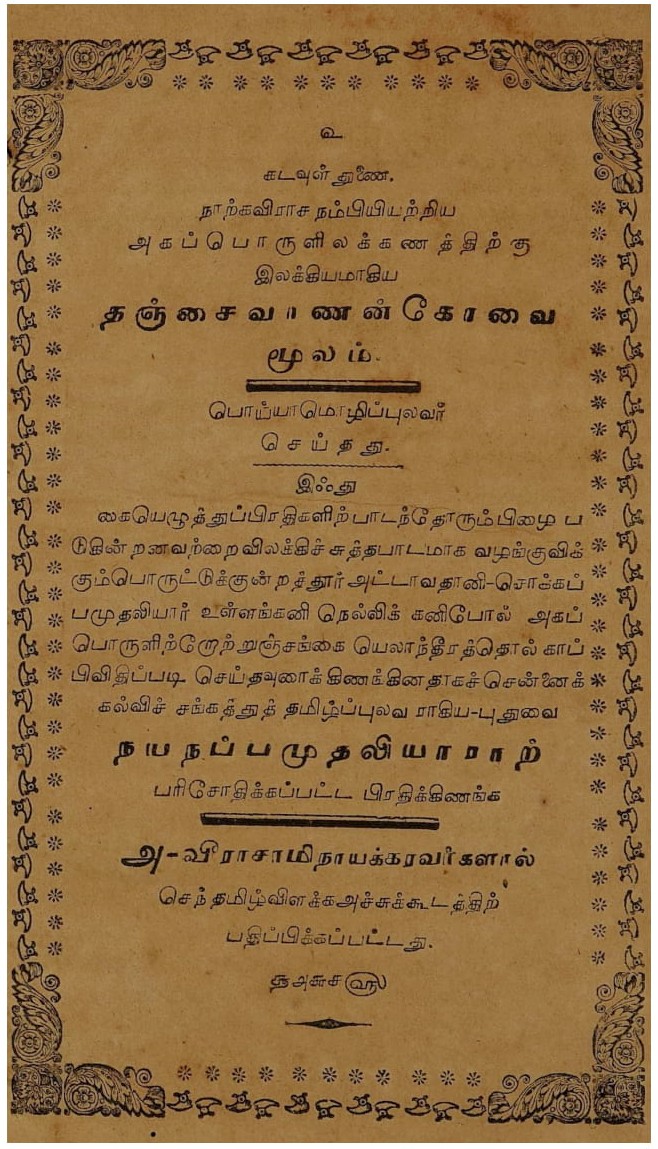 உ
கடவுள் துணை.
நாற்கவிராச நம்பியியற்றிய
அகப்பொருளிலக்கணத்திற்கு
இலக்கியமாகிய
தஞ்சைவாணன்கோவை
மூலம்.
பொய்யாமொழிப்புலவர்
செய்தது.
இஃது
கையெழுத்துப்பிரதிகளிற்பாடந்தோரும்பிழை ப
டுகின்றனவற்றைவிலக்கிச் சுத்தபாடமாக வழங்குவிக்
கும்பொருட்டுக்குன்றத்தூர் அட்டாவதானி-சொக்கப்
பமுதலியார் உள்ளங்கனி நெல்லிக் கனிபோல் அகப்
பொருளிற்றோற்றுஞ்சங்கை யெலாந்தீரத்தொல் காப்
பிவிதிப்படி செய்தவுரைக்கிணக்கினதாகச்சென்னைக்
கல்விச் சங்கத்துத் தமிழ்ப்புலவ ராகிய-புதுவை
நயநப்பமுதலியாராற்
பரிசோதிக்கப்பட்ட பிரதிக்கிணங்க
அ-வீராசாமிநாயக்கரவர்களால்
செந்தமிழ்விளக்கஅச்சுக்கூடத்திற்
பதிப்பிக்கப்பட்டது.